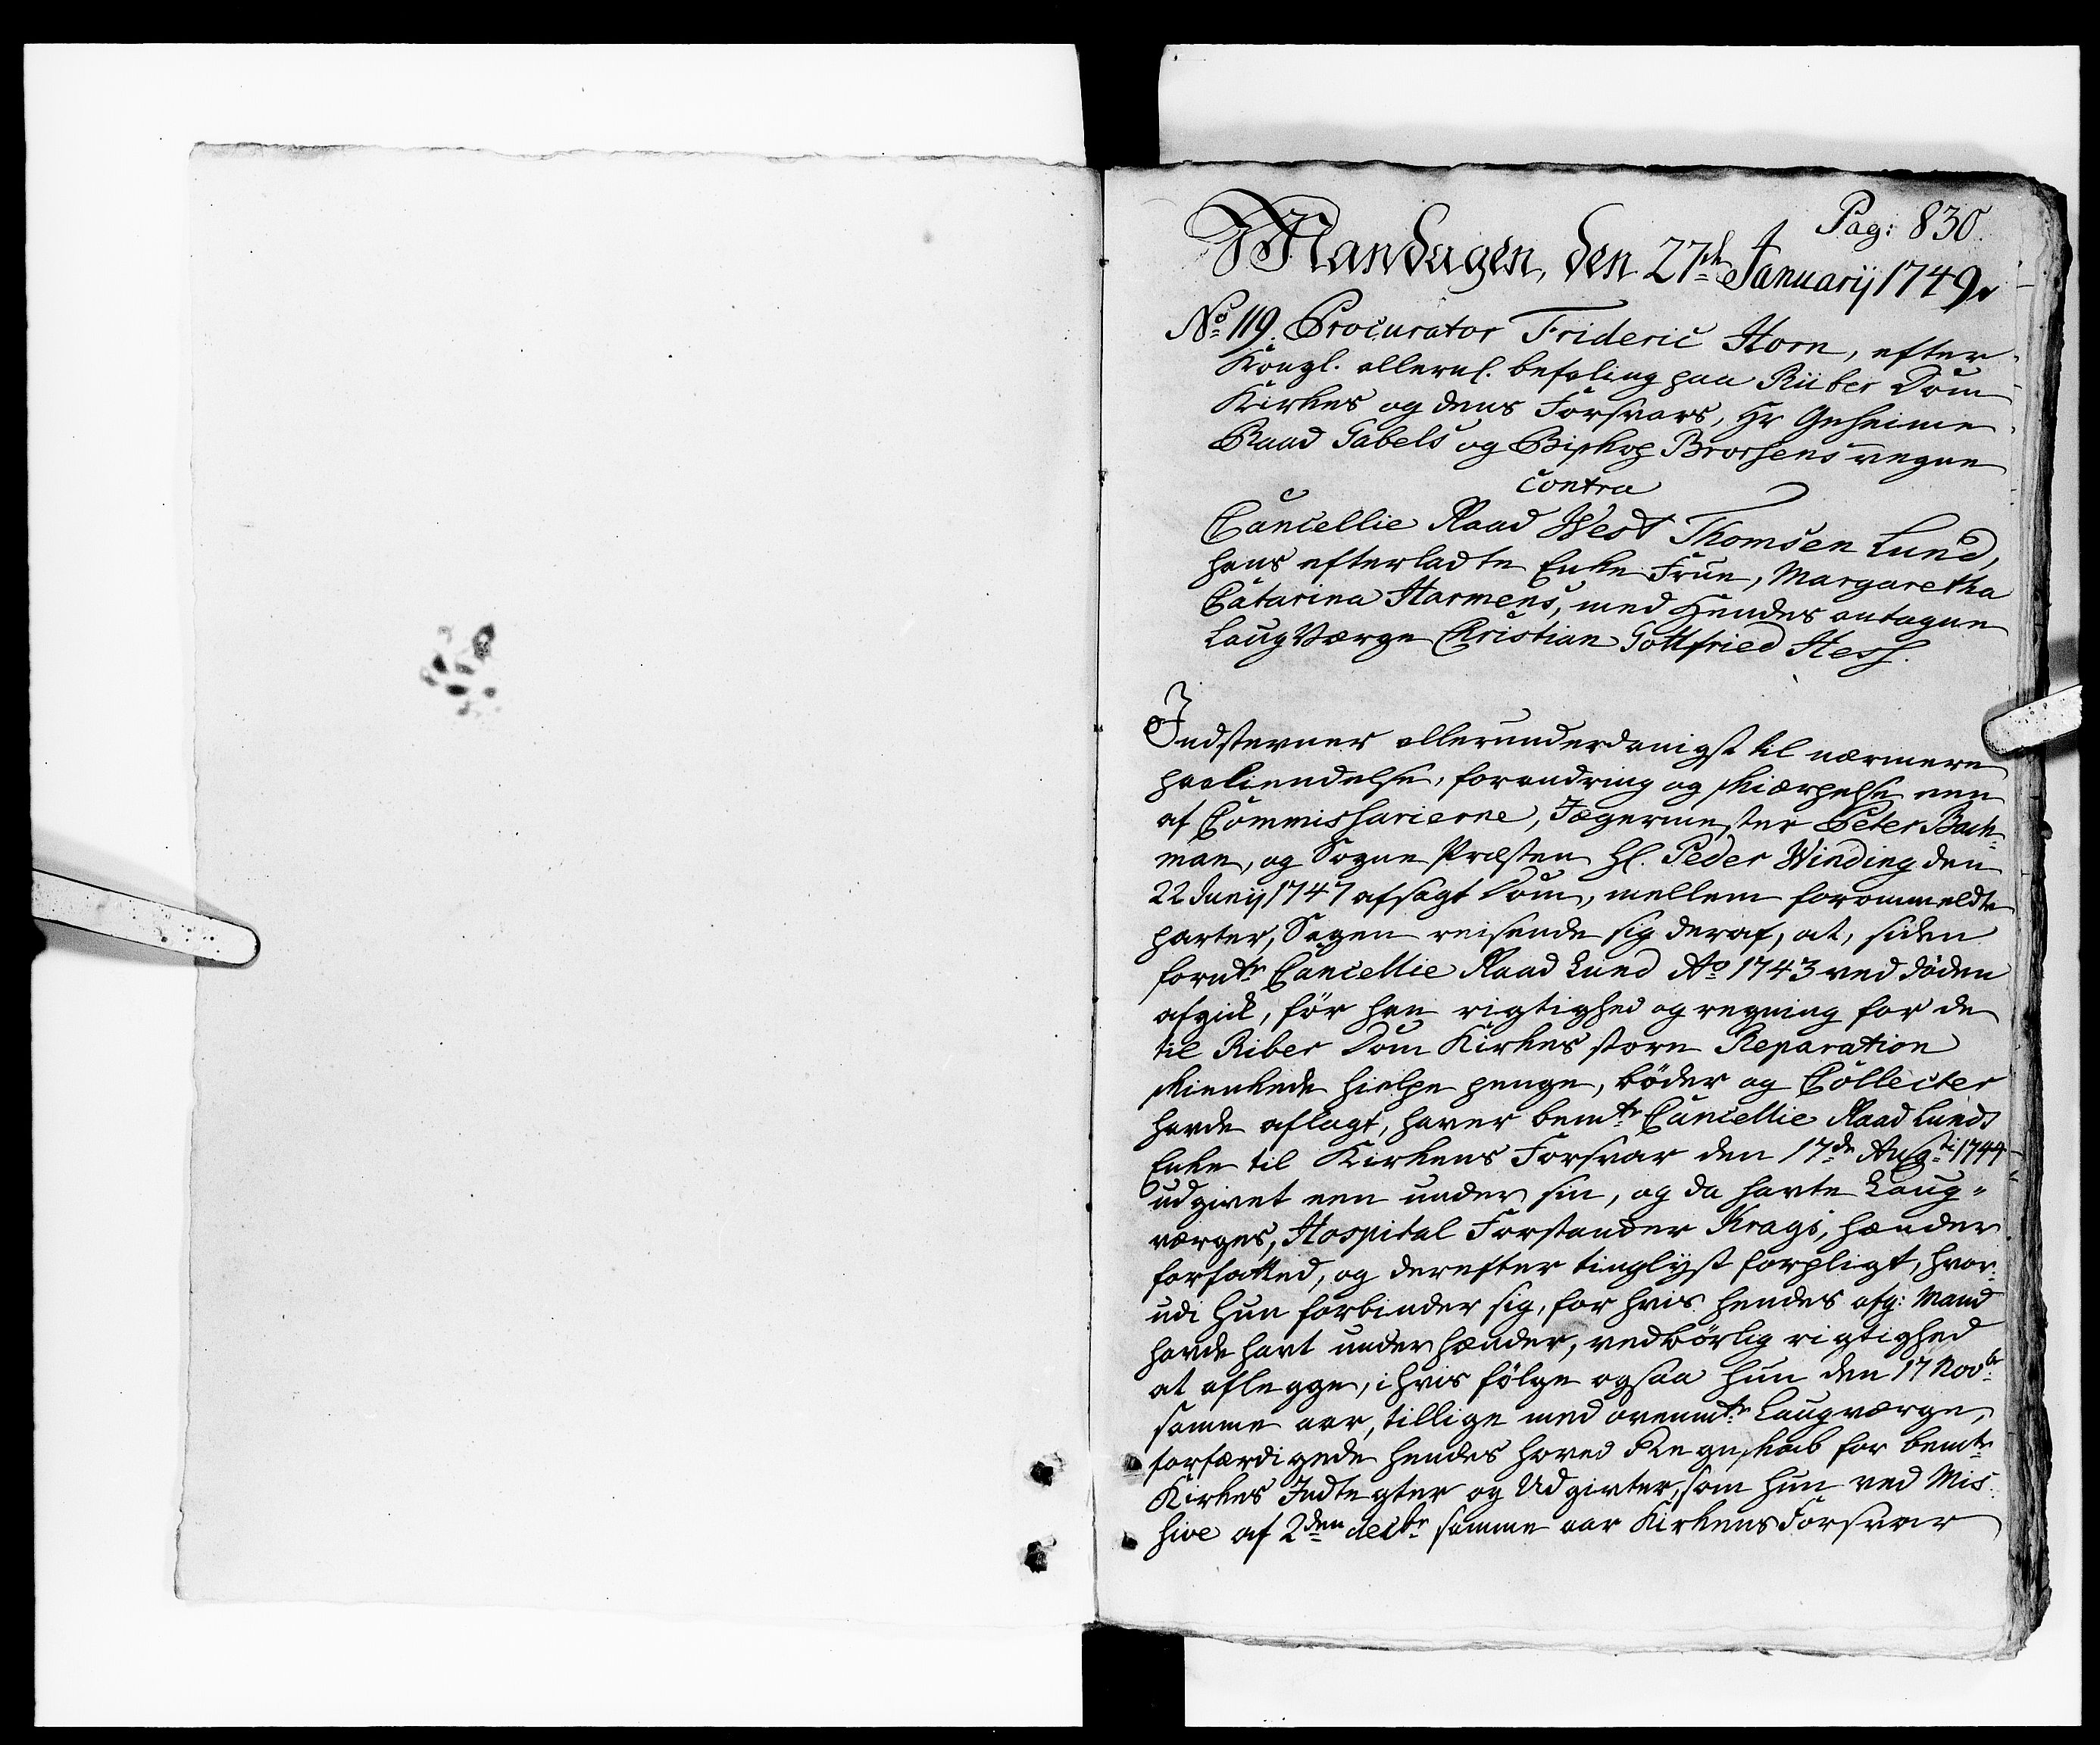 Pag: 830.
Mandagen, den 27de Januarij 1749.
No 119. Procurator Frideric Horn, efter
Kongl. allernl. befaling paa Riiber Dom
Kirkes og dens Forsvars, Hr Geheime
Raad Gabels og Biskop Brorsens vegne
contra
Cancellie Raad West Thomsen Lund,
hans efterladte Enke Frue, Margaretha
Catarina Harmens, med Hendes antagne
Laugværge Christian Gottfried Hess.
Indstevner allerunderdanigst til nærmere
paakiendelse, forandring og skiærpelse een
af Commissarierne, Jægermester Peter Bach-
man, og Sogne Præsten Hl. Peder Winding den
22 Junij 1747 afsagt Dom, mellem forommeldte
parter, Sagen reisende sig deraf, at, siden
fornte Cancellie Raad Lund Ao 1743 ved döden
afgik, för han rigtighed og regning for de
til Riber Dom Kirkes store Reparation
skienkede hielpe penge, böder og Collecter
havde aflagt, haver bemte Cancellie Raad Lunds
Enke til Kirkens Forsvar den 17de Augti 1744
udgivet een under sin, og da havte Laug-
værges, Hospital Forstander Krags, hænder
forfatted, og derefter tinglyst forpligt, hvor-
udi hun forbinder sig, for hvis hendes afg: Mand
havde havt under hænder, vedbörlig rigtighed
at aflegge, i hvis fölge ogsaa hun den 17 Novbr:
samme aar, tillige med ovenmte Laugværge,
forfærdigede hendes hoved Regnskab for bemte
Kirkes Indtegter og Udgivter, som hun ved Mis-
sive af 2den decbr samme aar Kirkens Forsvar